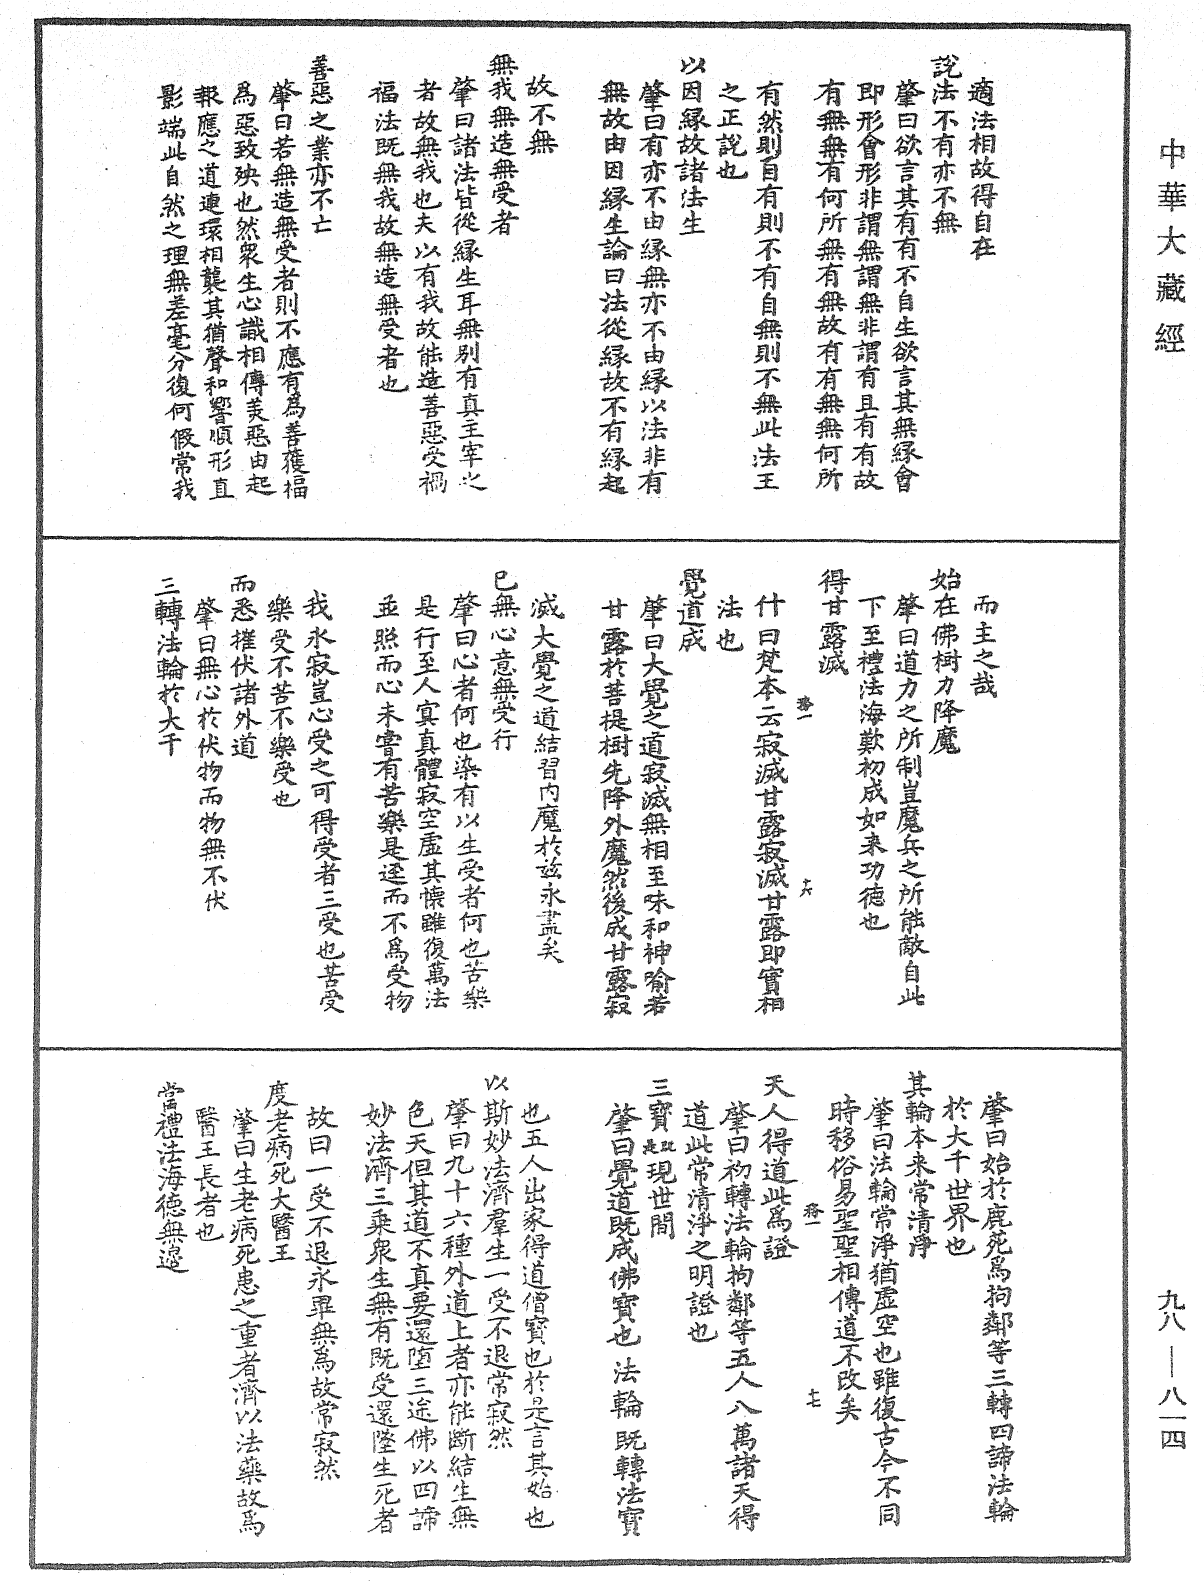 中華大藏經
適法相故得自在
說法不有亦不無
肇曰欲言其有有不自生欲言其無緣會
即形會形非謂無謂無非謂有且有有故
有無無有何所無有無故有有無無何所
有然則自有則不有自無則不無此法王
之正說也
以因緣故諸法生
肇曰有亦不由緣無亦不由緣以法非有
無故由因緣生論曰法從緣故不有緣起
故不無
無我無造無受者
肇曰諸法皆從緣生耳無別有真主宰之
者故無我也夫以有我故能造善惡受禍
福法既無我故無造無受者也
善惡之業亦不亡
肇曰若無造無受者則不應有為善獲福
為惡致殃也然衆生心識相傳美惡由起
報應之道連環相襲其猶聲和響順形直
影端此自然之理無差毫分復何假常我
而主之哉
始在佛樹力降魔
肇曰道力之所制豈魔兵之所能敵自此
下至禮法海歎初成如来功德也
得甘露滅
務一
十六
什曰梵本云寂滅甘露寂滅甘露即實相
法也
覺道成
肇曰大覺之道寂滅無相至味和神喻若
甘露於菩提樹先降外魔然後成甘露寂
滅大覺之道結習內魔於兹永盡矣
已無心意無受行
肇曰心者何也染有以生受者何也苦樂
是行至人冥真體寂空虛其懷雖復萬法
並照而心未甞有苦樂是逕而不為受物
我永寂豈心受之可得受者三受也苦受
樂受不苦不樂受也
而悉摧伏諸外道
肇曰無心於伏物而物無不伏
三轉法輪於大千
肇曰始於鹿苑為拘鄰等三轉四諦法輪
於大千世界也
其輪本来常清淨
肇曰法輪常淨猶虛空也雖復古今不同
時移俗易聖聖相傳道不改矣
務一
十七
天人得道此為證
肇曰初轉法輪拘鄰等五人八萬諸天得
道此常清淨之明證也
三寶於是現世間
肇曰覺道既成佛寶也法輪既轉法寶
也五人出家得道僧寶也於是言其始也
以斯妙法濟羣生一受不退常寂然
肇曰九十六種外道上者亦能斷結生無
色天但其道不真要還墮三途佛以四諦
妙法濟三乘衆生無有既受還墮生死者
故曰一受不退永畢無為故常寂然
度老病死大醫王
肇曰生老病死患之重者濟以法藥故為
醫王長者也
當禮法海德無邊
九八—八一四